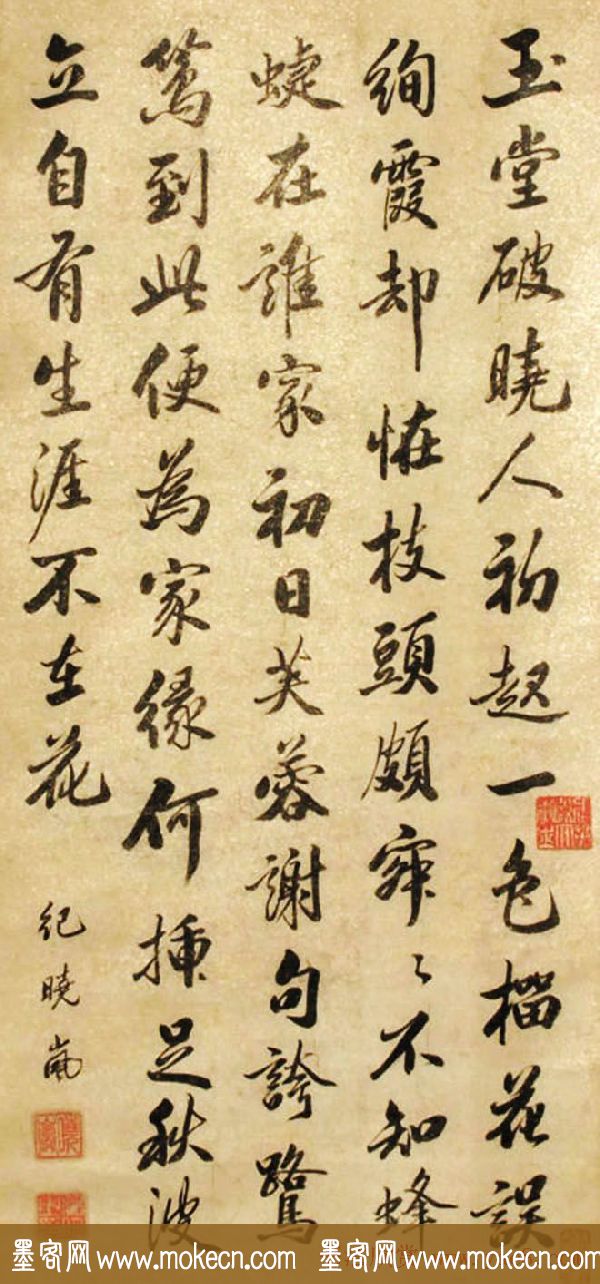 玉堂破曉人初起一色榴花誤
絢霞却恠枝頭頗寂〻不知蜂
蜨在誰家初日芙蓉謝句誇鷺
鷥到此便為家緣何插足秋波
立自有生涯不在花
紀曉嵐
墨客网 www.mokecn.com 墨客网 www.mokecn.com